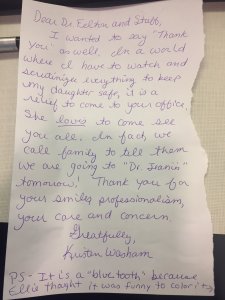 Dear Dr. Felton and Staff,
I wanted to say "Thank
You" as well. In a world
where I have to watch and
scrutinize everything to keep
my daughter safe, it is a
relief to come to your office.
She loves to come see
you all. In fact, we
call family to tell them
we are going to "Dr. Francis"
tomorrow! Thank you for
your smiles, professionalism,
your care and concern.
Greatfully,
Kristen Washam
PS - It is a "blue tooth" because
Ellie thought it was funny to color it